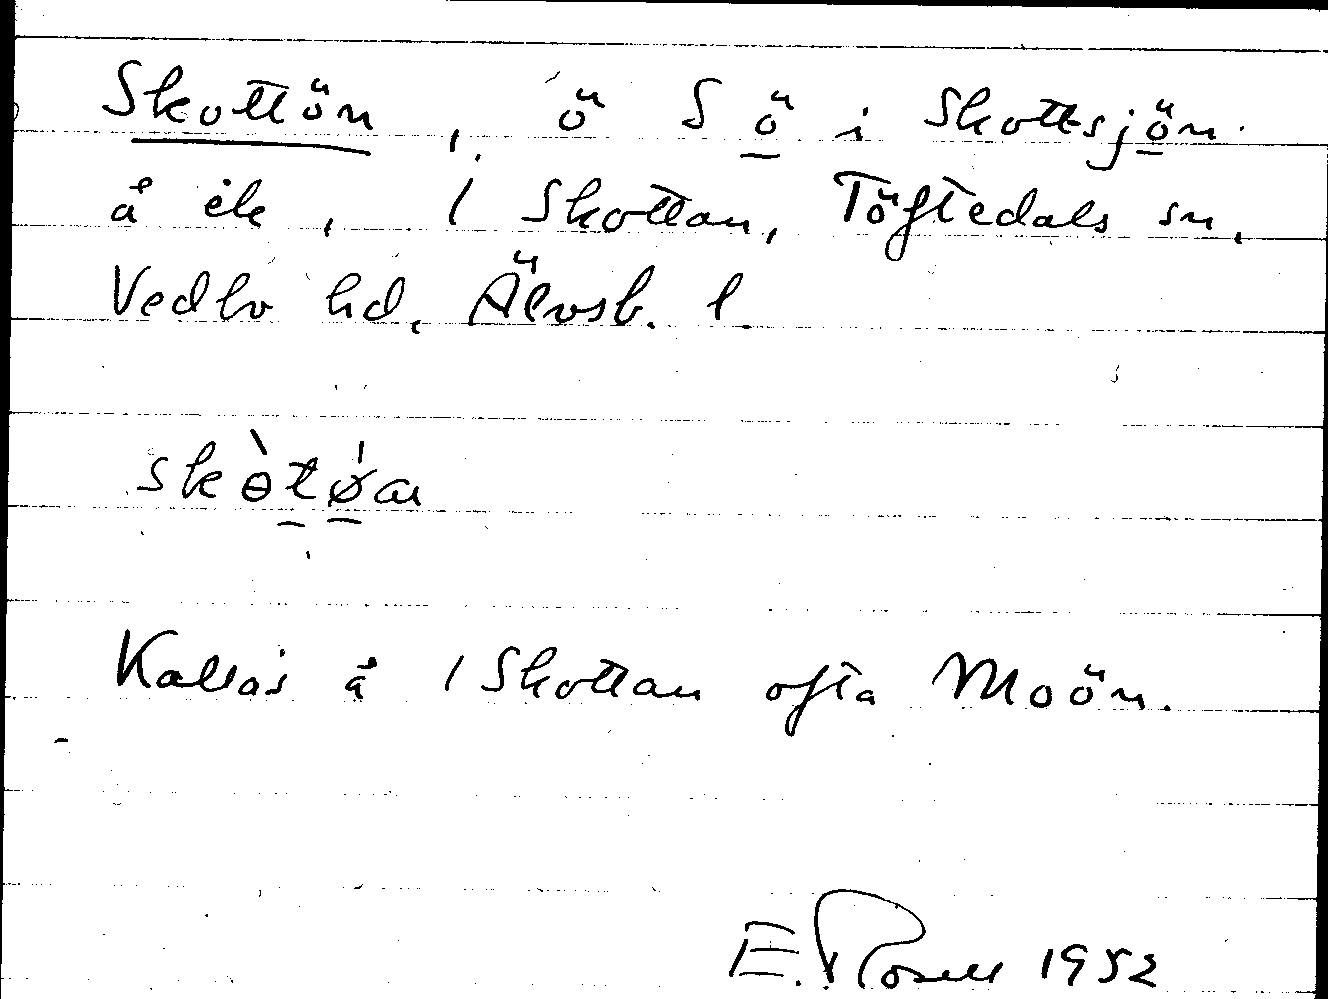 Skottön, ö S ö i Skottsjön
å ek, 1 Skottan, Töftedals sn,
Vedbo hd, Älvsb. l.
skὸtǿan
Kallas å 1 Skottan ofta Moön.
E. Rosell 1952